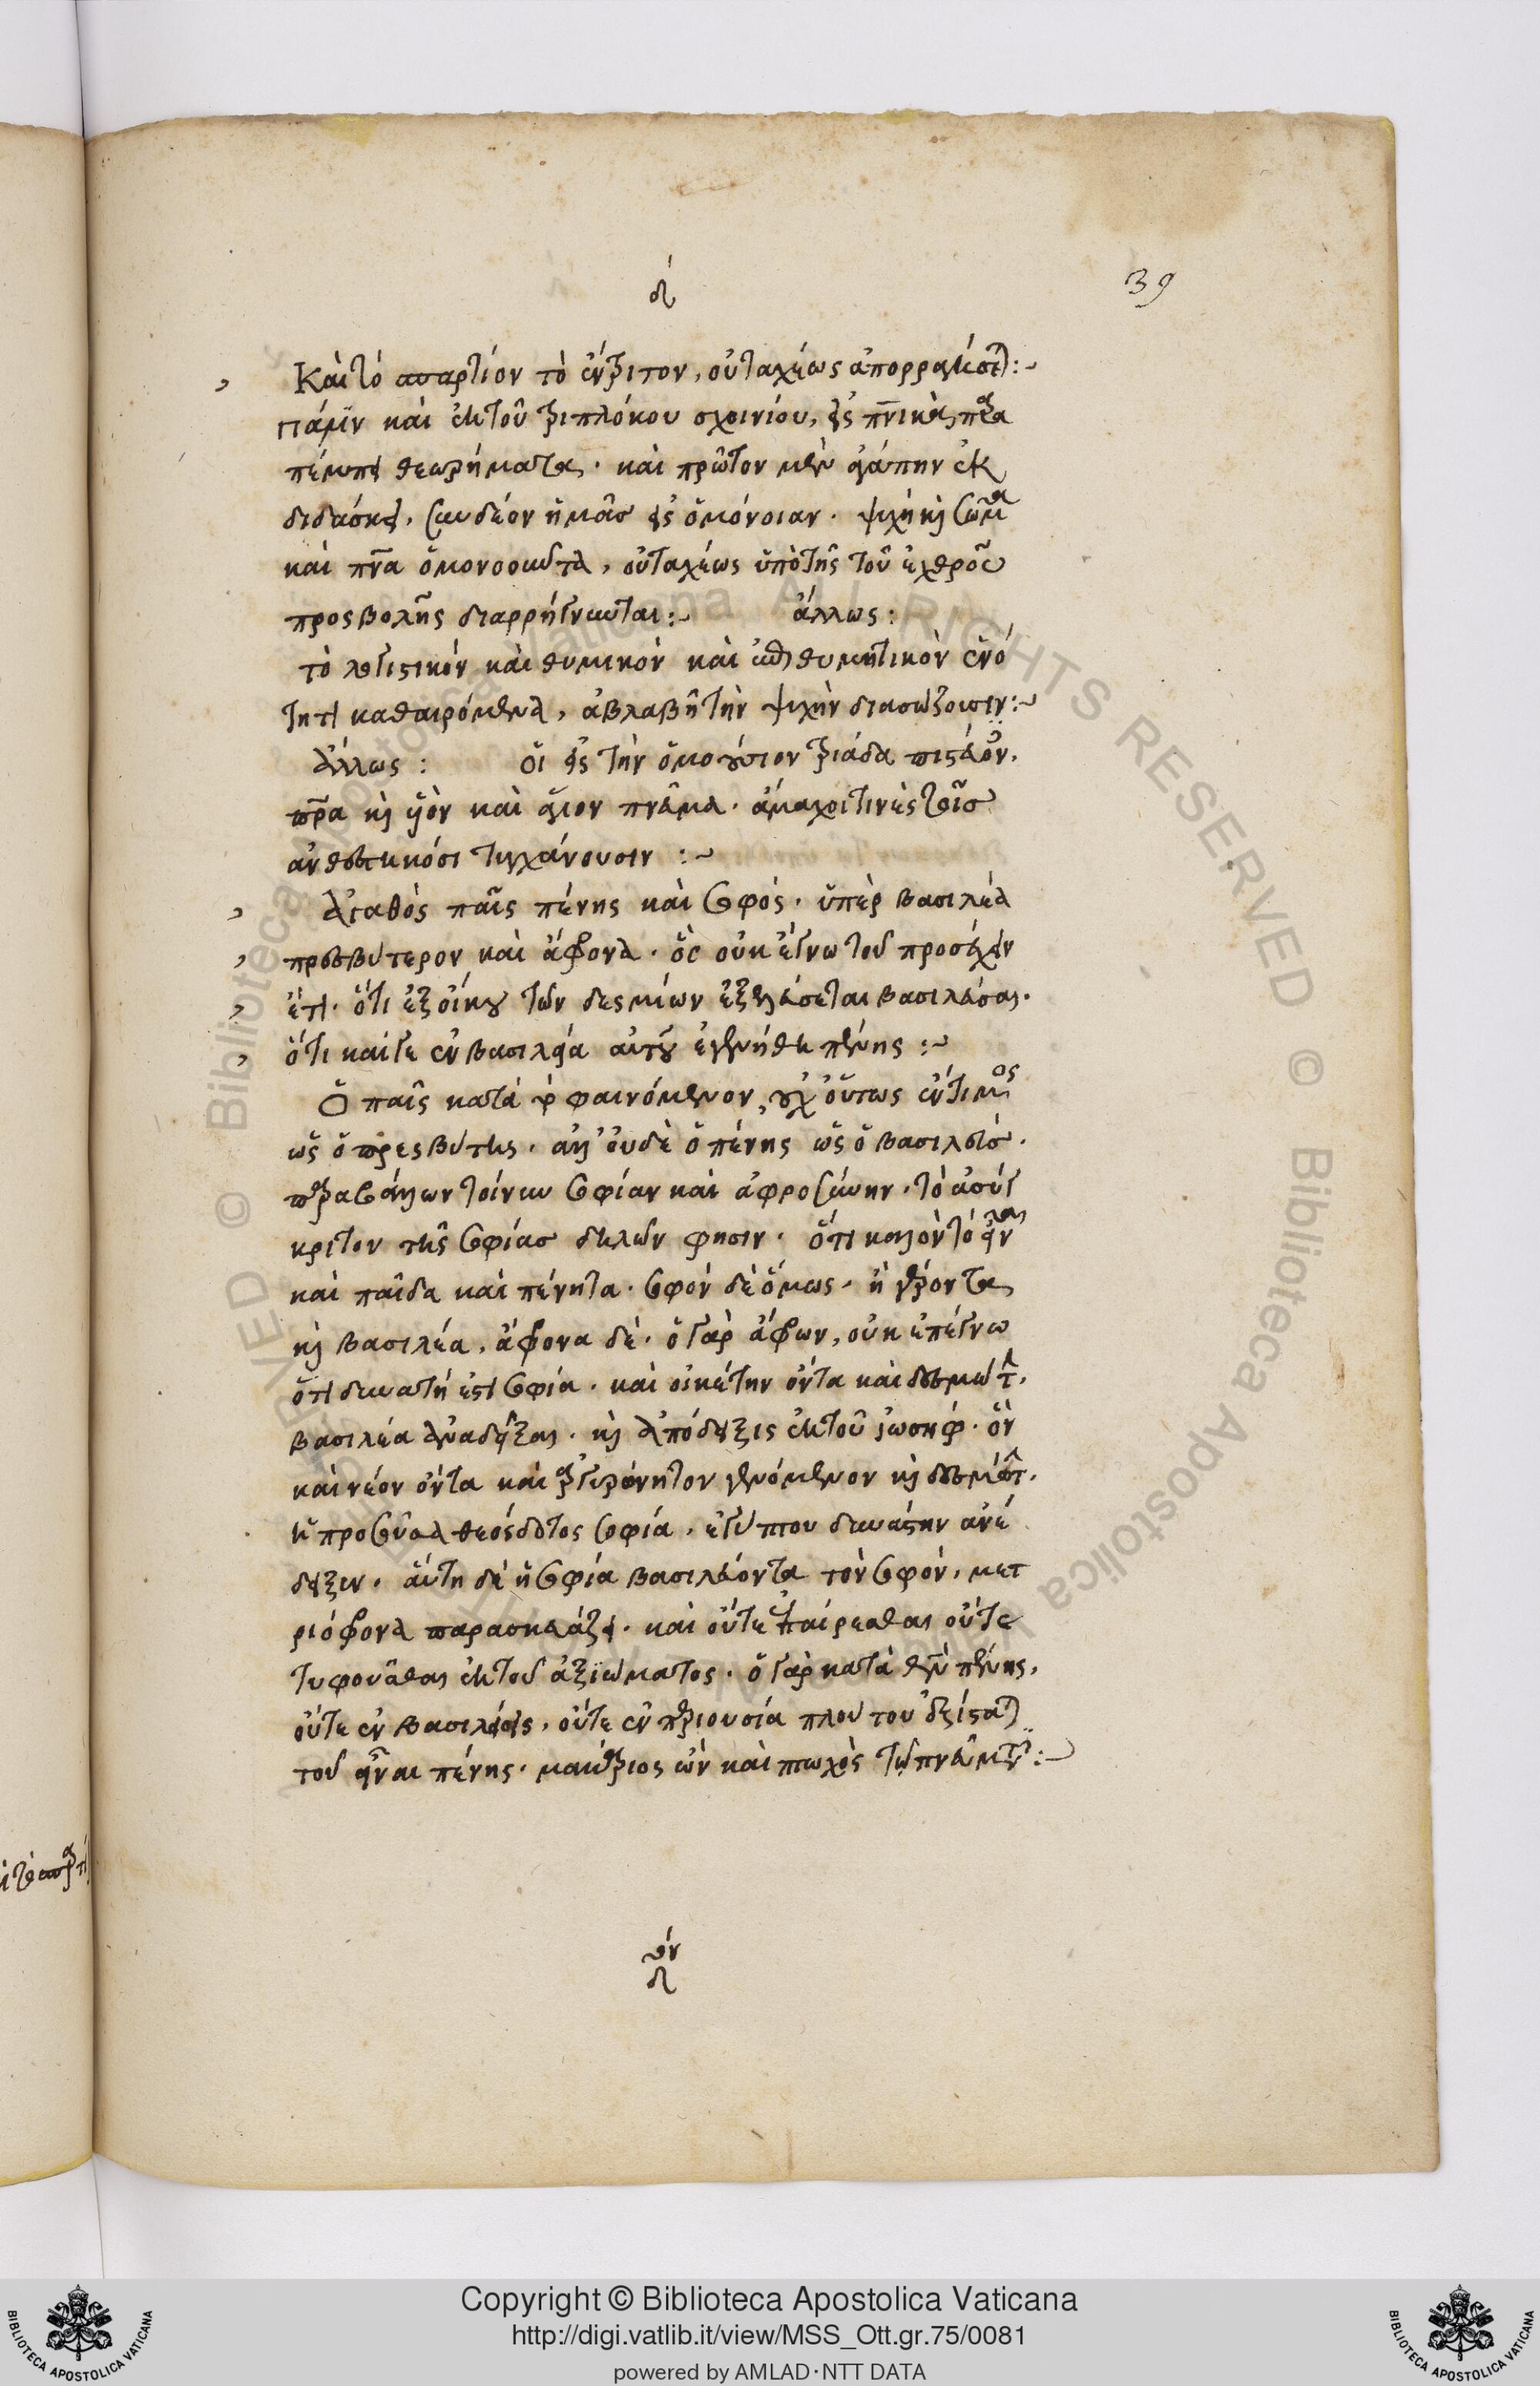 δ
39
Καὶ τὸ σπαρτίον τὸ ἔντριτον, οὐ ταχέως ἀπορραγήσεται:~
πάλιν καὶ ἐκ τοῦ τριπλόκου σχοινίου, εἰς πνικὰ παρα
πέμπει θεωρήματα. καὶ πρῶτον μὲν ἀγάπην ἐκ
διδάσκει, συνδέον ἡμᾶς εἰς ὁμόνοιαν. ψυχὴ καὶ σῶμα
καὶ πνα ὁμονοοῦντα, οὐ ταχέως ὑπὸ τῆς τοῦ ἐχθροῦ
προσβολῆς διαρρήγνυται:~ ἄλλως:
τὸ λογιστικὸν καὶ θυμικὸν καὶ ἐπιθυμητικὸν ἑνό
τητι καθαιρόμενα, ἀβλαβῆ τὴν ψυχὴν διασώζουσιν:~
ἄλλως: οἱ εἰς τὴν ὁμοούσιον τριάδα πιστεύον,
πρα καὶ υἱὸν καὶ ἅγιον πνεῦμα. ἄμαχοί τινες τοῖς
ἀνθεστηκόσι τυγχάνουσιν:~
Ἀγαθὸς παῖς πένης καὶ σοφός. ὑπὲρ βασιλέα
πρεσβύτερον καὶ ἄφρονα. ὃς οὐκ ἔγνω τοῦ προσέχειν
ἔτι. ὅτι ἐξ οἴκου τῶν δεσμίων ἐξελεύσεται βασιλεῦσαι.
ὅτι καί γε ἐν βασιλείᾳ αὐτοῦ ἐγενήθη πένης:~
Ὁ παῖς κατὰ τὸ φαινόμενον, οὐχ οὕτως ἔντιμος
ὡς ὁ πρεσβύτης. ἀλλ' οὐδὲ ὁ πένης ὡς ὁ βασιλεύς.
παραβάλλων τοίνυν σοφίαν καὶ ἀφροσύνην. τὸ ἀσύγ
κριτον τῆς σοφίας δηλῶν φησιν. ὅτι καλὸν τὸ εἶναι
καὶ παῖδα καὶ πένητα. σοφὸν δὲ ὅμως. ἢ γέροντα
καὶ βασιλέα, ἄφρονα δέ. ὁ γὰρ ἄφρων, οὐκ ἐπέγνω
ὅτι δυνατή ἐστι σοφία. καὶ οἰκέτην ὄντα καὶ δεσμώτ,
βασιλέα ἀναδεῖξαι. καὶ ἀπόδειξις ἐκ τοῦ ἰωσήφ. ὃν
καὶ νέον ὄντα καὶ ἀργυρώνητον γενόμενον καὶ δεσμώτ,
ἡ προσοῦσα θεόσδοτος σοφία, αἰγύπτου δυνάστην ἀνέ
δειξεν. αὕτη δὲ ἡ σοφία βασιλεύοντα τὸν σοφόν, μετ
ριόφρονα παρασκευάζει. καὶ οὔτε ἐπαίρεσθαι οὔτε
τυφοῦσθαι ἐκ τοῦ ἀξιώματος. ὁ γὰρ κατὰ θεὸν πένης,
οὔτε ἐν βασιλείοις, οὔτε ἐν περιουσίᾳ πλούτου ἐξίσταται
τοῦ εἶναι πένης. μακάριος ὢν καὶ πτωχὸς τῷ πνεύματι:~